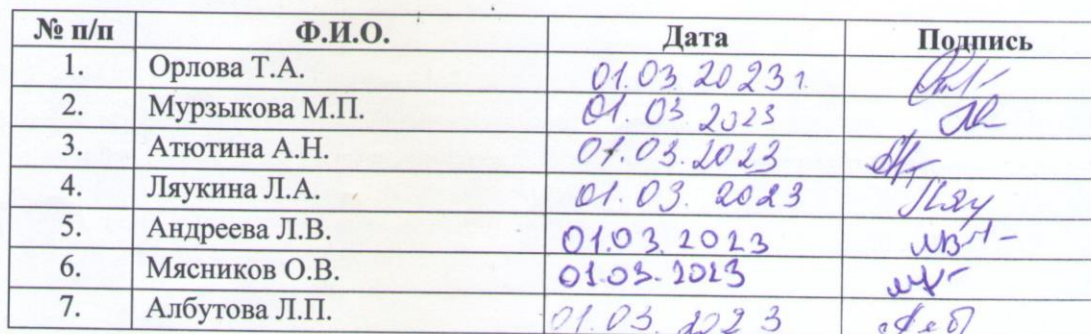 № п/п Ф.И.О. Дата Подпись
1. Орлова Т.А. 01.03.2023 г.
2. Мурзыкова М.П. 01.03.2023
3. Атютина А.Н. 01.03.2023
4. Ляукина Л.А. 01.03.2023 Ляу
5. Андреева Л.В. 01.03.2023
6. Мясников О.В. 01.03.2023
7. Албутова Л.П. 01.03.2023